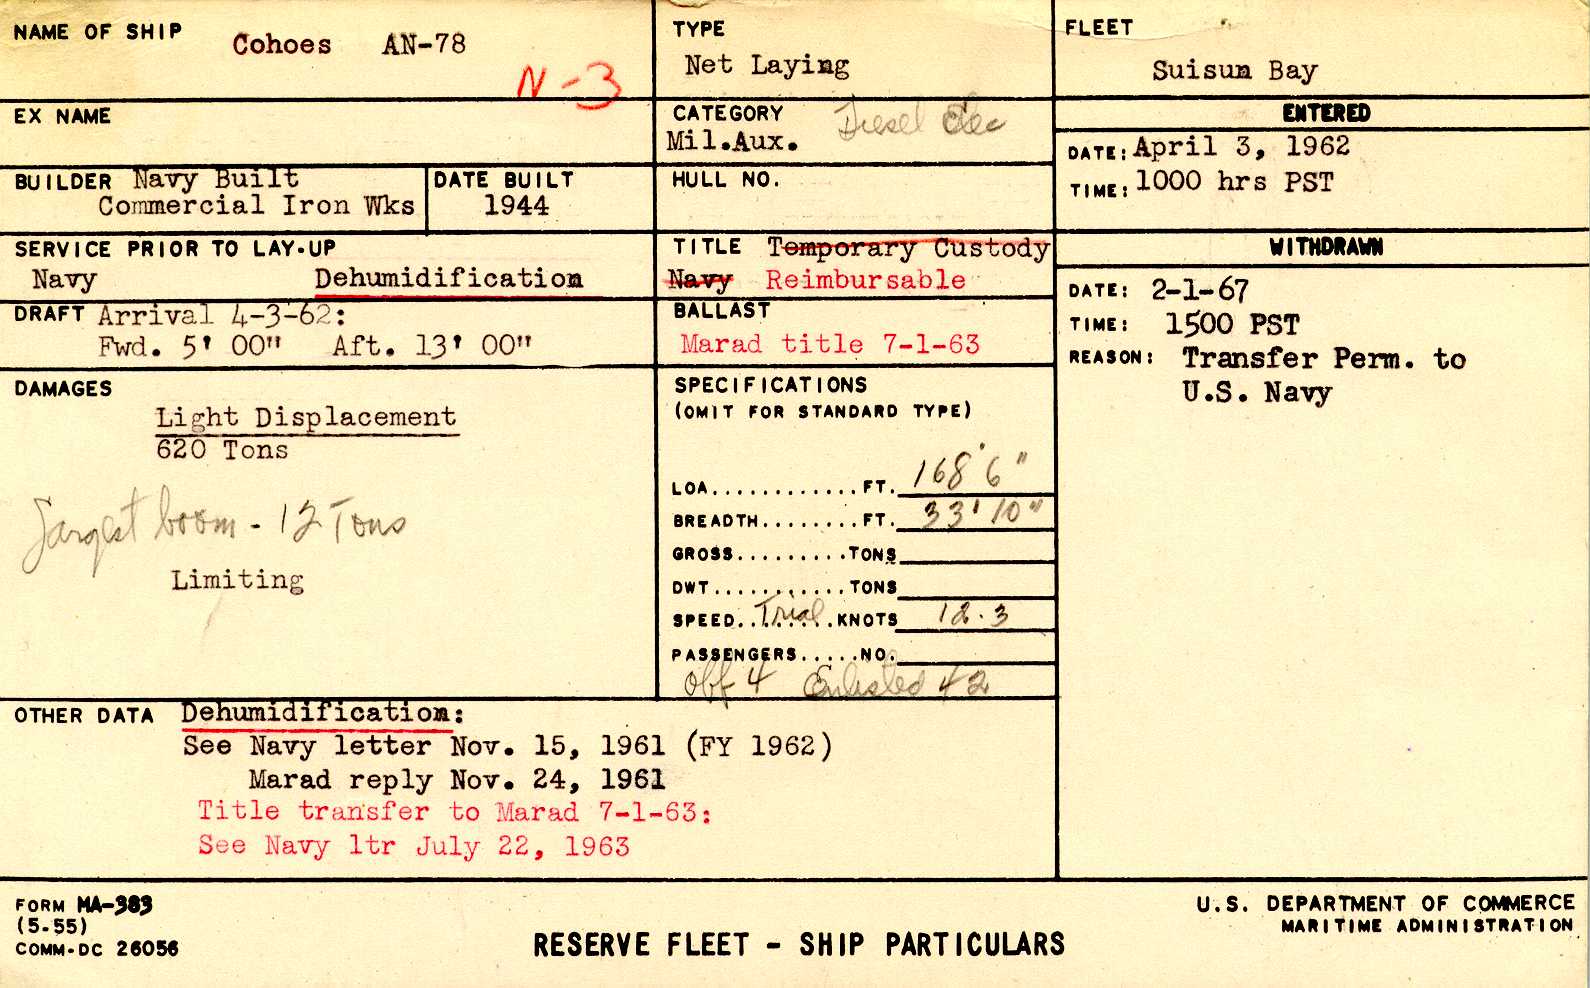 NAME OF SHIP Cohoes AN-78
N-3
TYPE
Net Laying
FLEET
Suisun Bay
EX NAME
CATEGORY Diesel Elec
Mil.Aux.
ENTERED
DATE: April 3, 1962
TIME: 1000 hrs PST
BUILDER Navy Built
Commercial Iron Wks
DATE BUILT
1944
HULL NO.
SERVICE PRIOR TO LAY-UP
Navy Dehumidification
TITLE Temporary Custody
Navy Reimbursable
WITHDRAWN
DATE: 2-1-67
TIME: 1500 PST
REASON: Transfer Perm. to
U.S. Navy
DRAFT Arrival 4-3-62:
Fwd. 5' 00" Aft. 13' 00"
BALLAST
Marad title 7-1-63
DAMAGES
Light Displacement
620 Tons
Largest boom - 12 Tons
Limiting
SPECIFICATIONS
(OMIT FOR STANDARD TYPE)
LOA............FT. 168' 6"
BREADTH........FT. 33' 10"
GROSS.........TONS
DWT...........TONS
SPEED..Trial..KNOTS 12.3
PASSENGERS.....NO.
Off 4 Enlisted 42
OTHER DATA Dehumidification:
See Navy letter Nov. 15, 1961 (FY 1962)
Marad reply Nov. 24, 1961
Title transfer to Marad 7-1-63:
See Navy ltr July 22, 1963
FORM MA-383
(5-55)
COMM-DC 26056
RESERVE FLEET - SHIP PARTICULARS
U.S. DEPARTMENT OF COMMERCE
MARITIME ADMINISTRATION